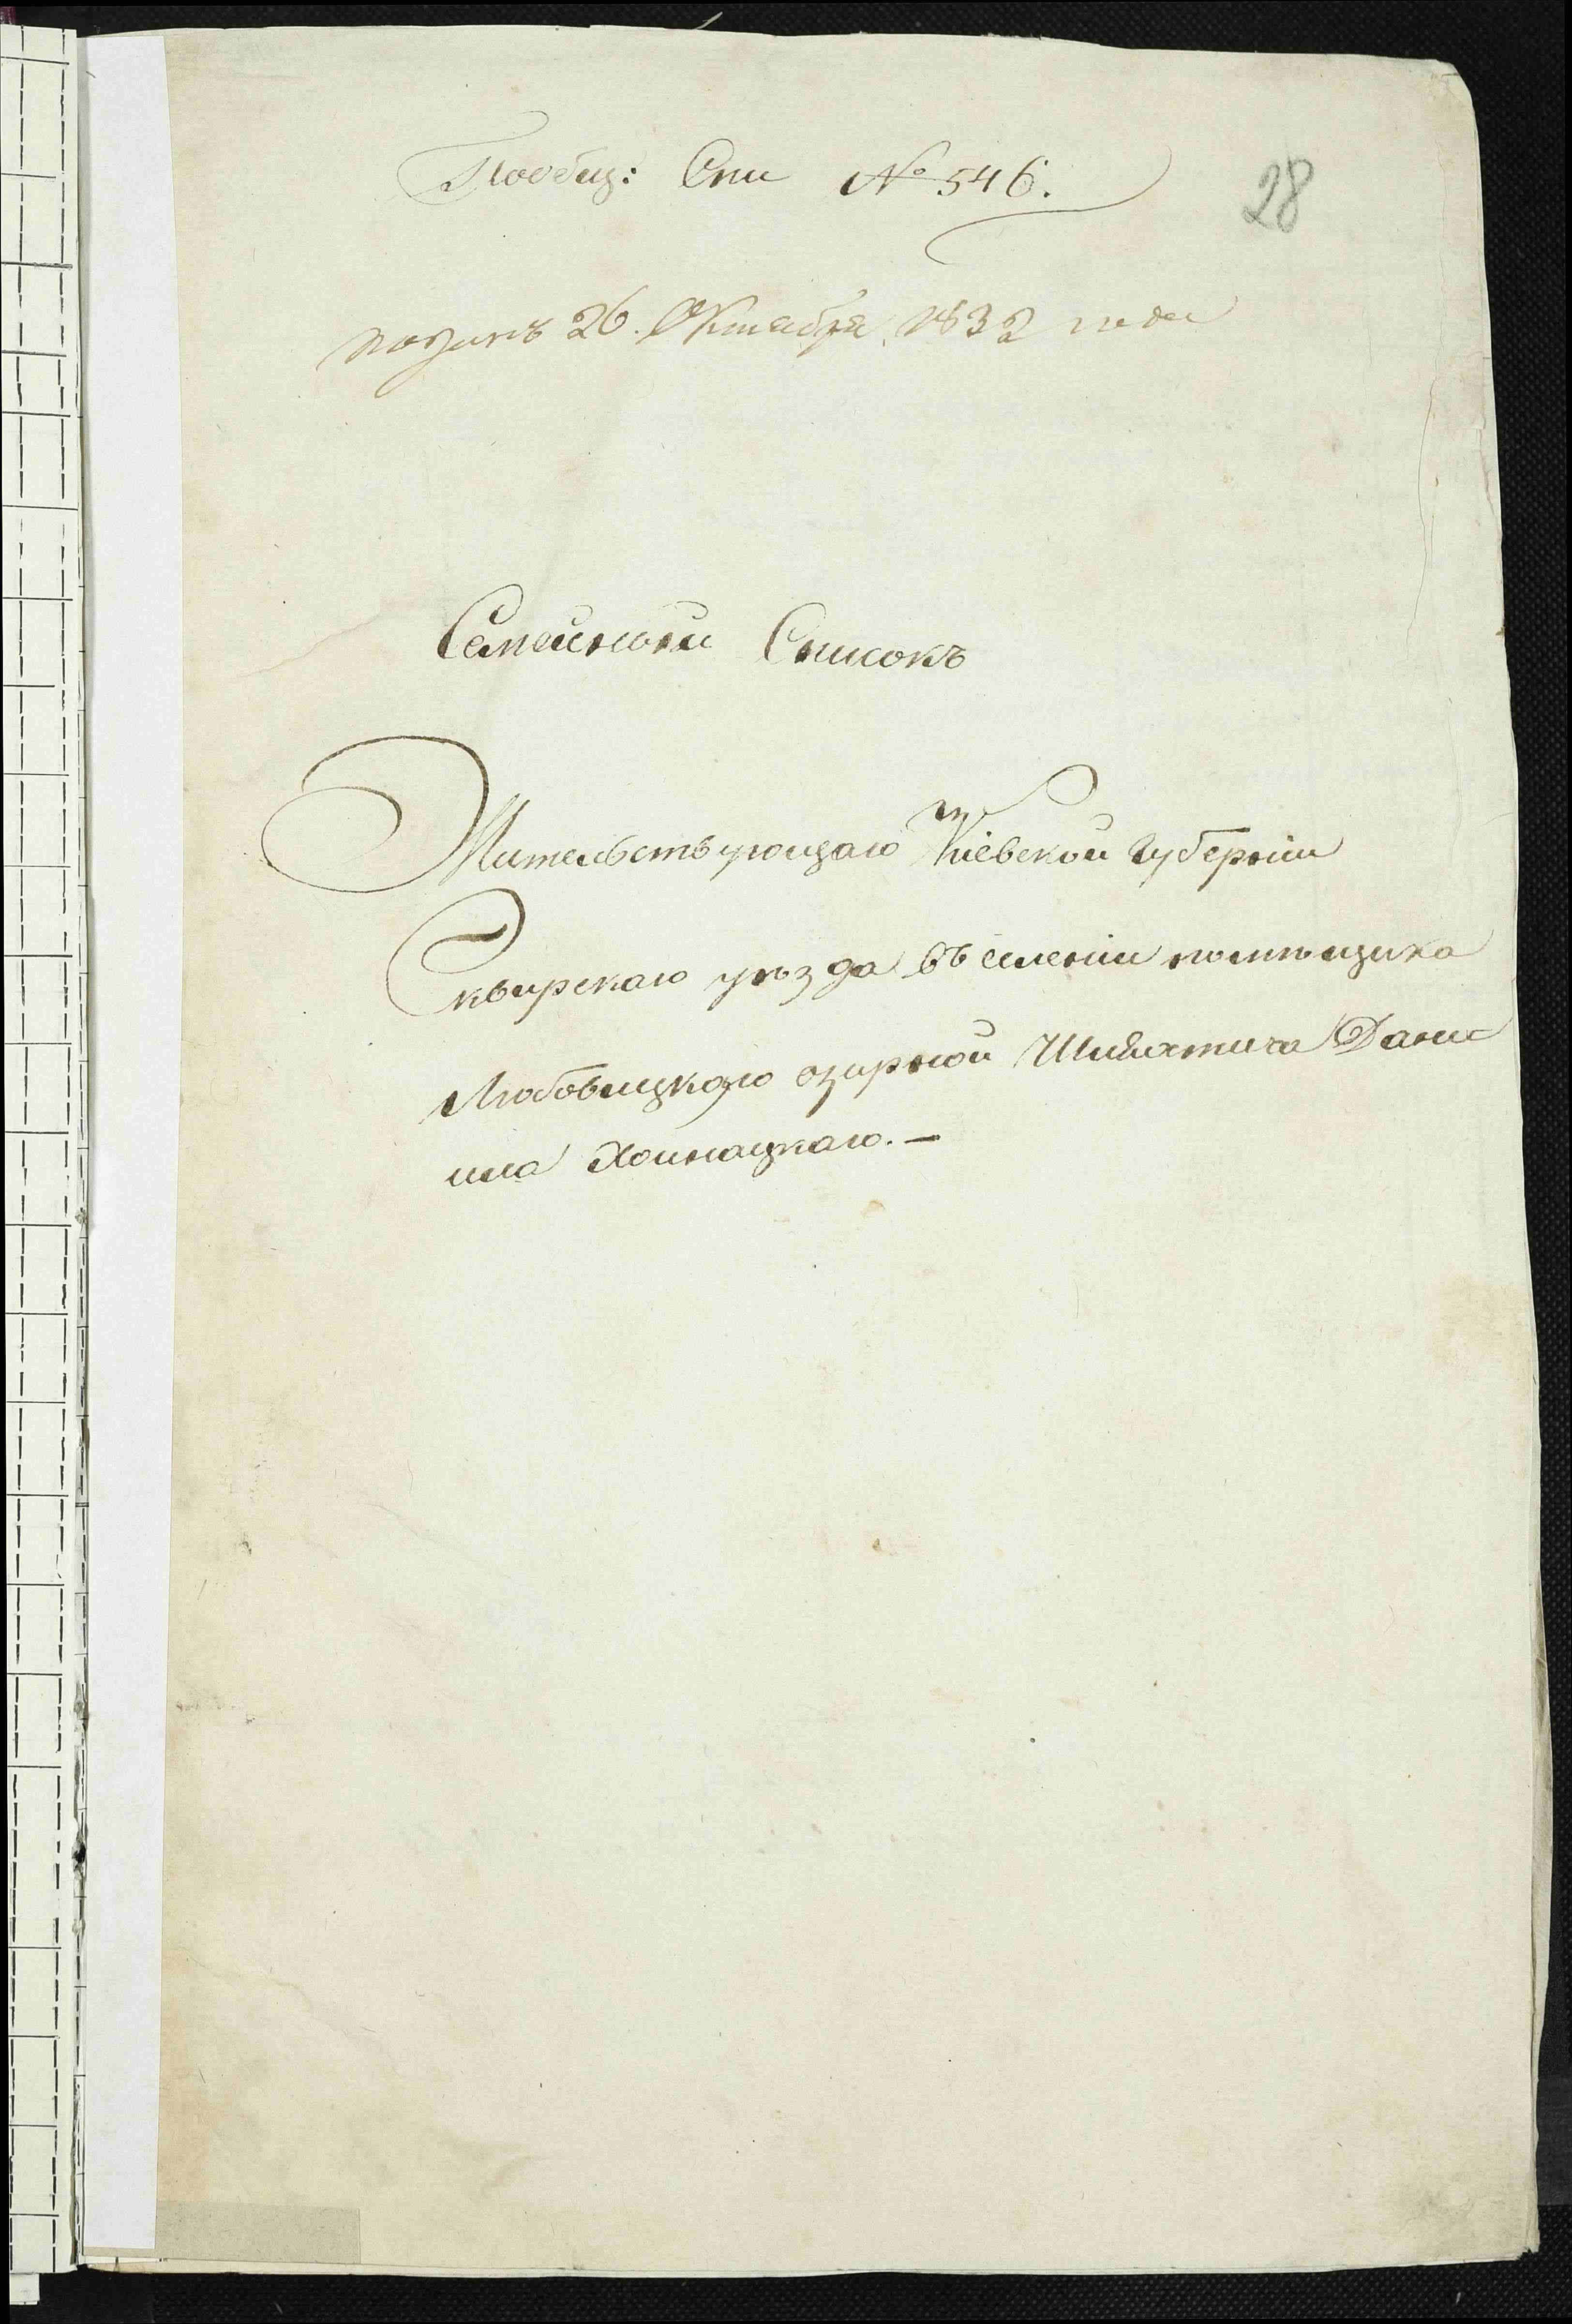 Пообщ: Опи № 546.
28
поданъ 26. Октября 1832 года
Семейный Списокъ
Жительствующаго Кіевской Губерніи
Сквирскаго уѣзда въ имѣніи помѣщика
Любовицкаго озирной Шляхтича Дани
ила Хойнацкаго.—